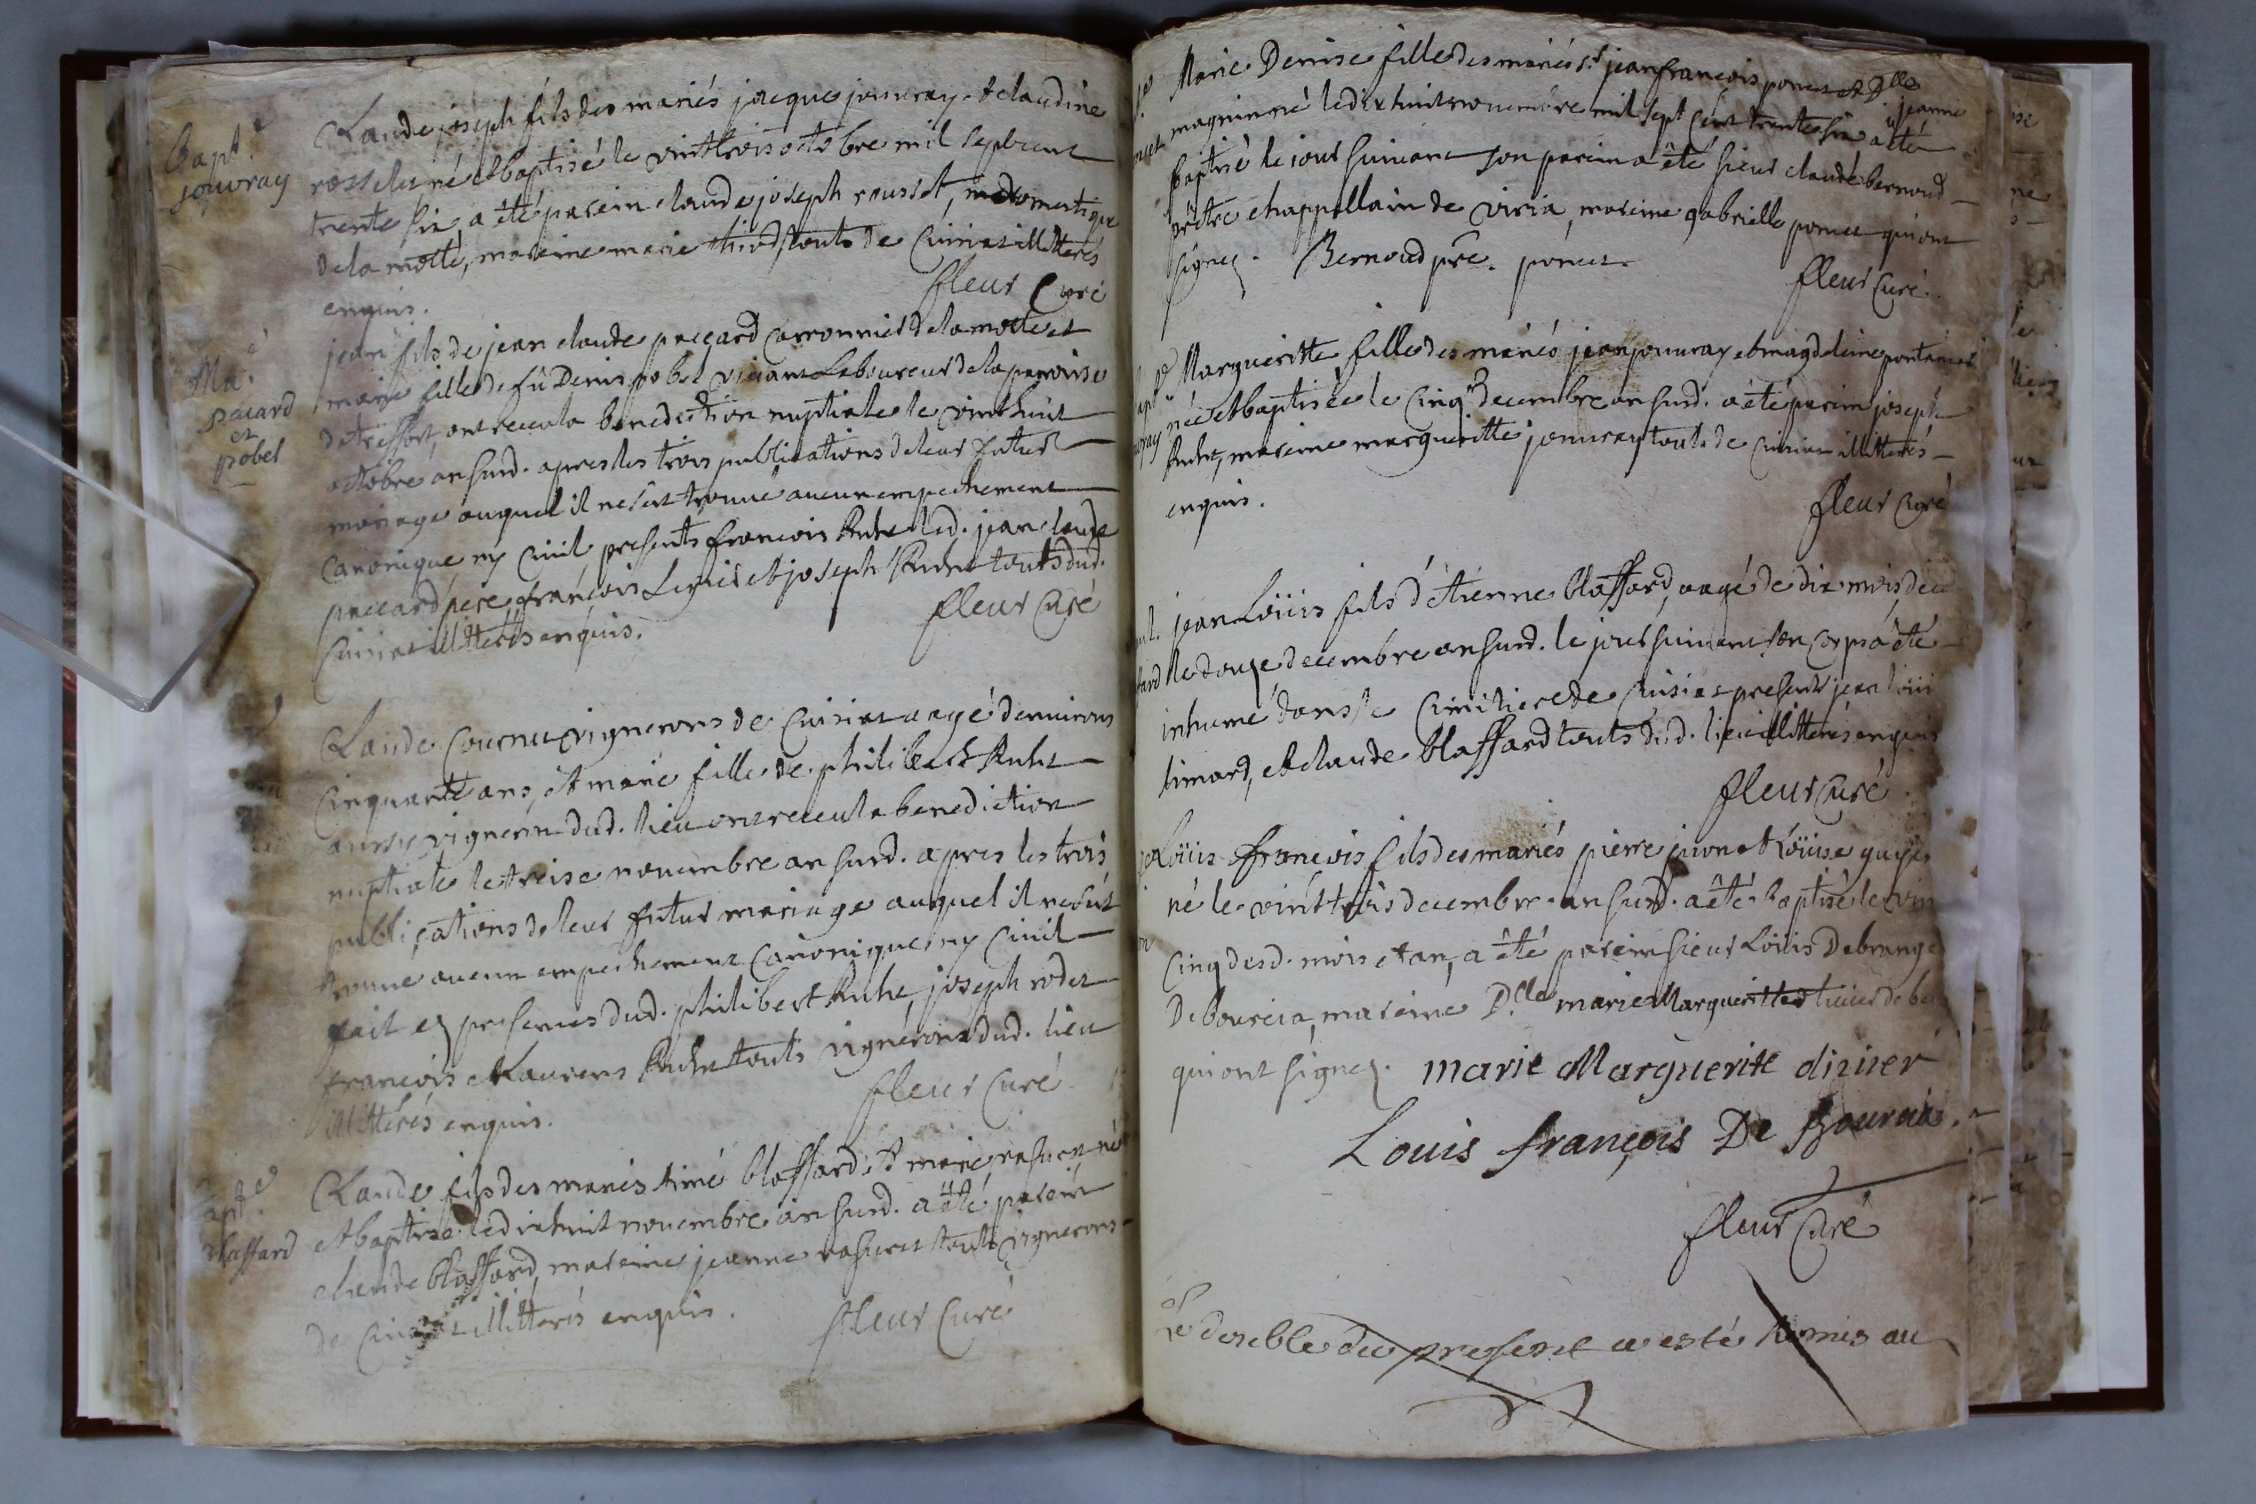 Bapt.e
jouvray
Claude joseph fils des mariés jacque jouuray et claudine
rosselet né et baptisé le vint trois octobre mil sept cent
trente six, a été parein claude joseph rousset, domestique
de la motte, mareine marie thiod, touts de Cuisiat illitterés
enquis.
fleur Curé
Ma.e
pacard
et
pobel
jean fils de jean claude paccard carronnier de la motte et
marie fille de fû Denis pobel viuant Laboureur de la paroisse
de treffort, ont receu la benediction nuptiale le vint huit
octobre an susd. apres les trois publications de leur futur
mariage auquel il ne s'est trouué aucun empechement
canonique ny Ciuil, presents francois Ruhet led. jean claude
paccard pere, francois et joseph Ruhet touts dud.
Cuisiat illitterés enquis.
fleur Curé
Claude Cournu vignerons de Cuisiat aagé d'enuirons
Cinquante ans, et marie fille de philibert Ruhet
aussy vigneron dud. lieu ont receu la benediction
nuptiale le treise nouembre an susd. apres les trois
publications de leur futur mariage auquel il ne s'est
trouué aucun empechement Canonique ny Ciuil
fait ez presences dud. philibert Ruhet, joseph rodet
francois et Laurens Ruhet touts vignerons dud. lieu
illitterés enquis.
fleur Curé
apt.e
blaffard
Claude fils des mariés aimé blaffard et marie rasuret né
et baptisé le dix huit nouembre an susd. a été parein
claude blaffard, mareine jeanne rasuret touts vignerons
de Cuisiat illitterés enquis.
fleur Curé
Marie Denise fille des mariés s.r jean francois ponet et D.lle jeanne
magnin né le dix huit nouembre mil sept cent trente six a été
baptisé le jour suiuant son parein a été sieur claude bernoud
prêtre chappellain de viria, mareine gabrielle ponet qui ont
signez. Bernoud pre. ponet
fleur Curé
Margueritte fille des mariés jean jouuray et magdeleine
née et baptisée le Cinq decembre an susd. a été parein joseph
Ruhet, mareine margueritte jouuray touts de Cuisiat illitterés
enquis.
fleur Curé
jean Loüis fils d'étienne blaffard, aagé de dix mois,
le douze decembre an susd. le jour suiuant son corps a été
inhumé dans le Cimitiere de Cuisiat presents jean
timard, et claude blaffard touts dud. lieu illitterés enquis
fleur Curé
Loüis francois fils des mariés pierre et Loüise
né le vint trois decembre an susd. a été baptisé le vin
Cinq desd. mois et an, a été parein sieur Loüis Debrange
De bourcia, mareine D.lle marie Margueritte
qui ont signez. marie Marguerite diuier
Louis françois De Bourcia.
fleur Curé
Le double du present a esté Remis au